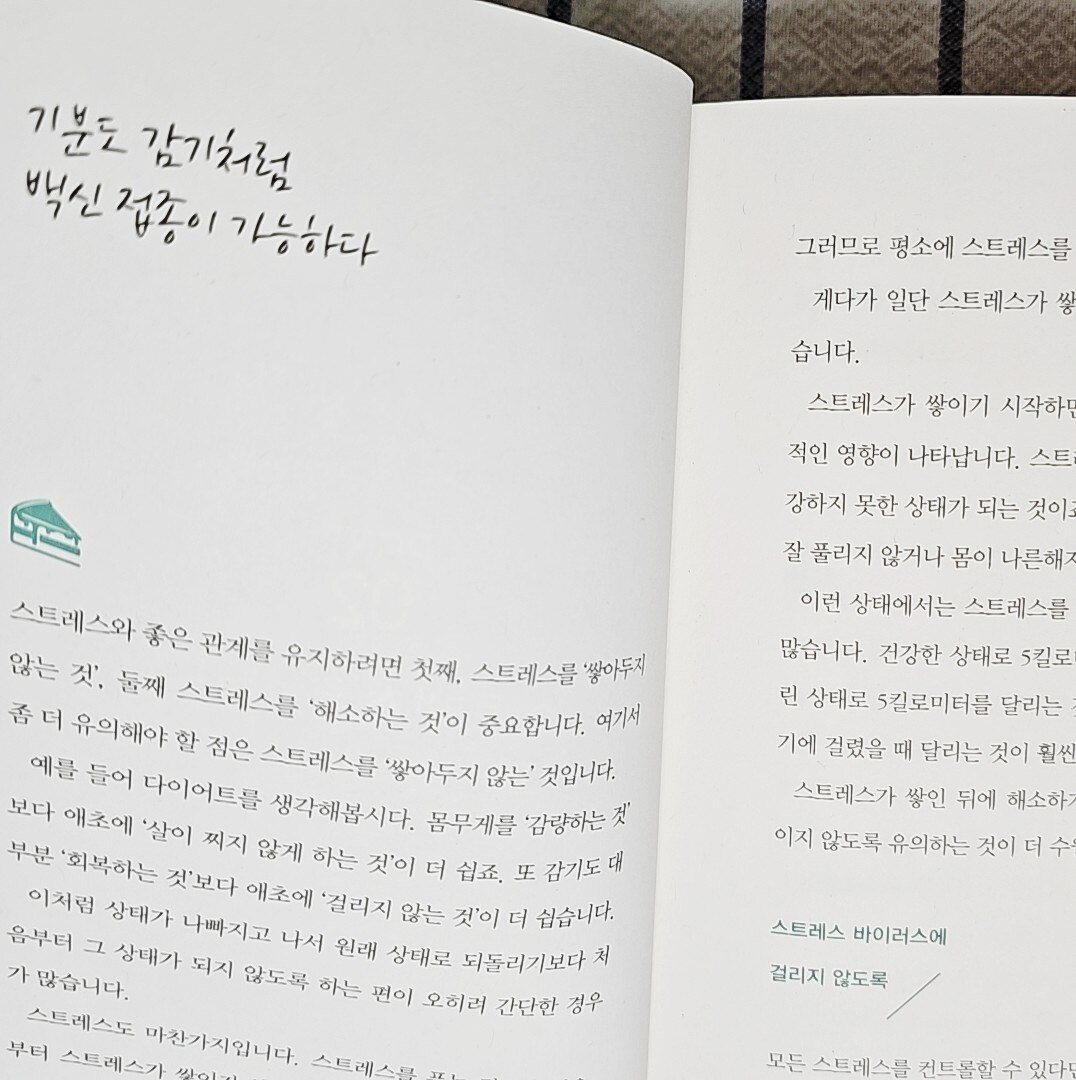 기분도 감기처럼
백신 접종이 가능하다
스트레스와 좋은 관계를 유지하려면 첫째, 스트레스를 ‘쌓아두지
않는 것’, 둘째 스트레스를 ‘해소하는 것’이 중요합니다. 여기서
좀 더 유의해야 할 점은 스트레스를 ‘쌓아두지 않는’ 것입니다.
예를 들어 다이어트를 생각해봅시다. 몸무게를 ‘감량하는 것’
보다 애초에 ‘살이 찌지 않게 하는 것’이 더 쉽죠. 또 감기도 대
부분 ‘회복하는 것’보다 애초에 ‘걸리지 않는 것’이 더 쉽습니다.
이처럼 상태가 나빠지고 나서 원래 상태로 되돌리기보다 처
음부터 그 상태가 되지 않도록 하는 편이 오히려 간단한 경우
가 많습니다.
스트레스도 마찬가지입니다. 스트레스를 푸는
부터 스트레스가
그러므로 평소에 스트레스를
게다가 일단 스트레스가 쌓
습니다.
스트레스가 쌓이기 시작하면
적인 영향이 나타납니다. 스트
강하지 못한 상태가 되는 것이
잘 풀리지 않거나 몸이 나른해지
이런 상태에서는 스트레스를
많습니다. 건강한 상태로 5킬로
린 상태로 5킬로미터를 달리는
기에 걸렸을 때 달리는 것이 훨씬
스트레스가 쌓인 뒤에 해소하
이지 않도록 유의하는 것이 더
스트레스 바이러스에
걸리지 않도록
모든 스트레스를 컨트롤할 수 있다면